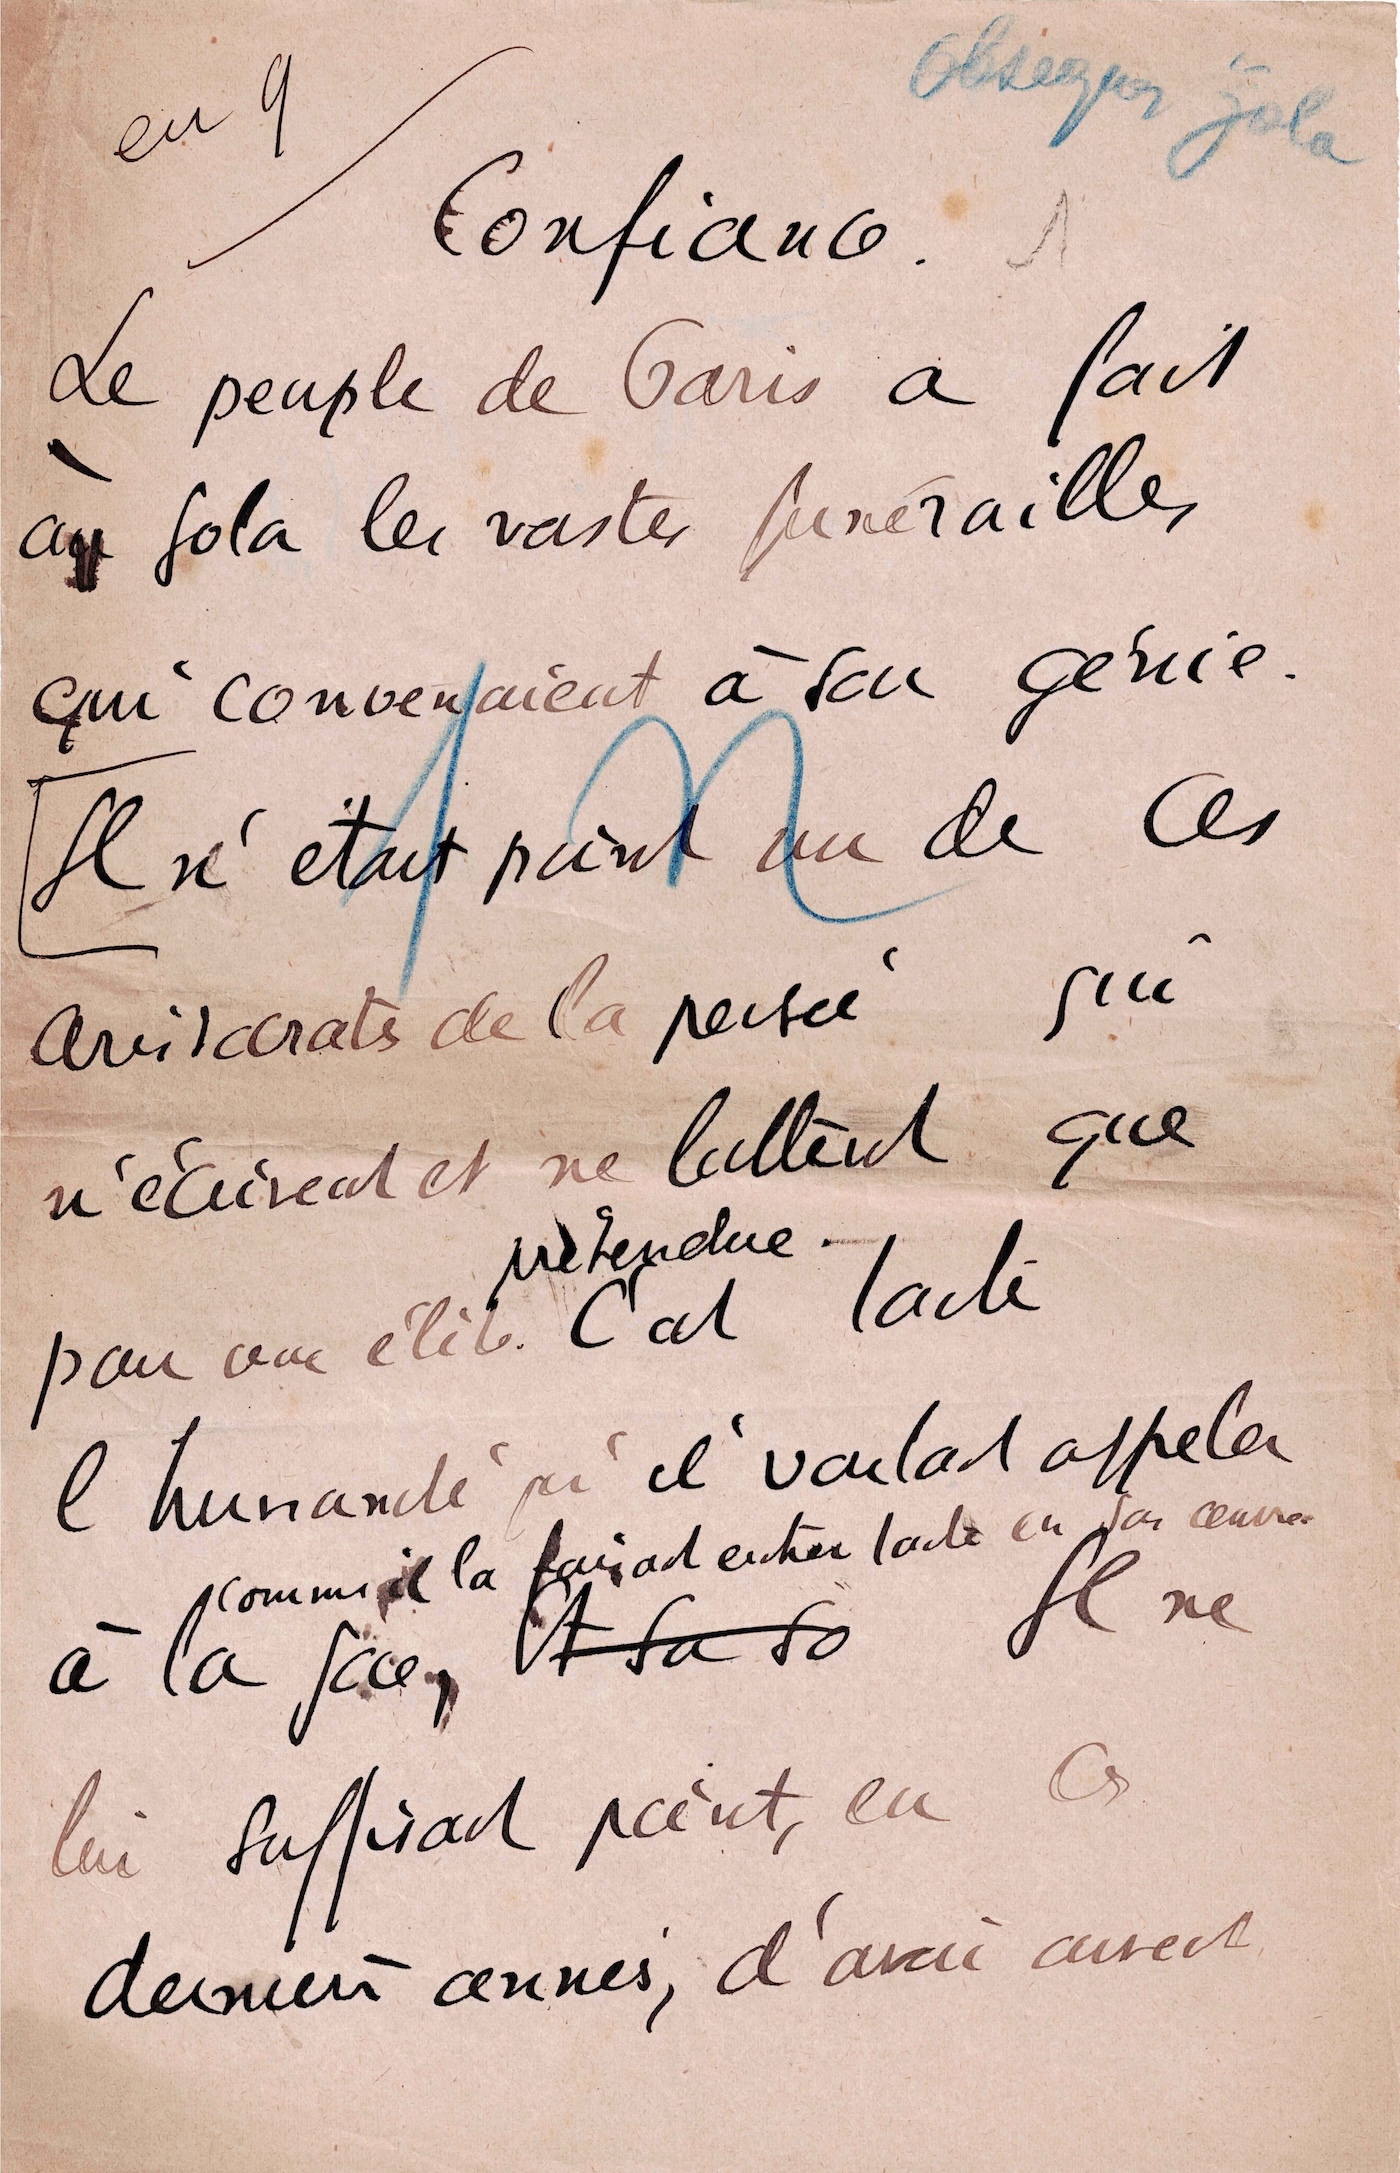 en 9
Obsèques Zola
Confiance. 1
Le peuple de Paris a fait
à Zola les vastes funérailles
qui convenaient à son génie.
Il n'était point un de ces
aristocrates de la pensée qui
n'écrivent et ne luttent que
prétendue.
pour une élite. C'est toute
l'humanité qu'il voulait appeler
comme il la faisait entrer toute en son œuvre.
à la force, et sa so Il ne
lui suffisait point, en ces
dernières années, d'avoir ouvert